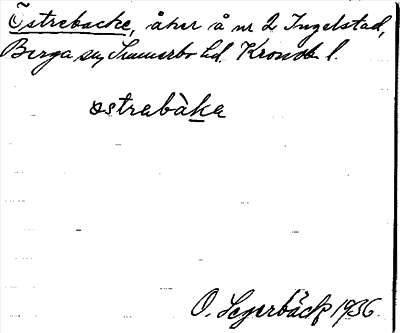 Östrebacke, åker å nr 2 Ingelstad,
Berga sn, Sunnerbo hd. Kronob l.
ostrabàka
O. Segerbäck 1936